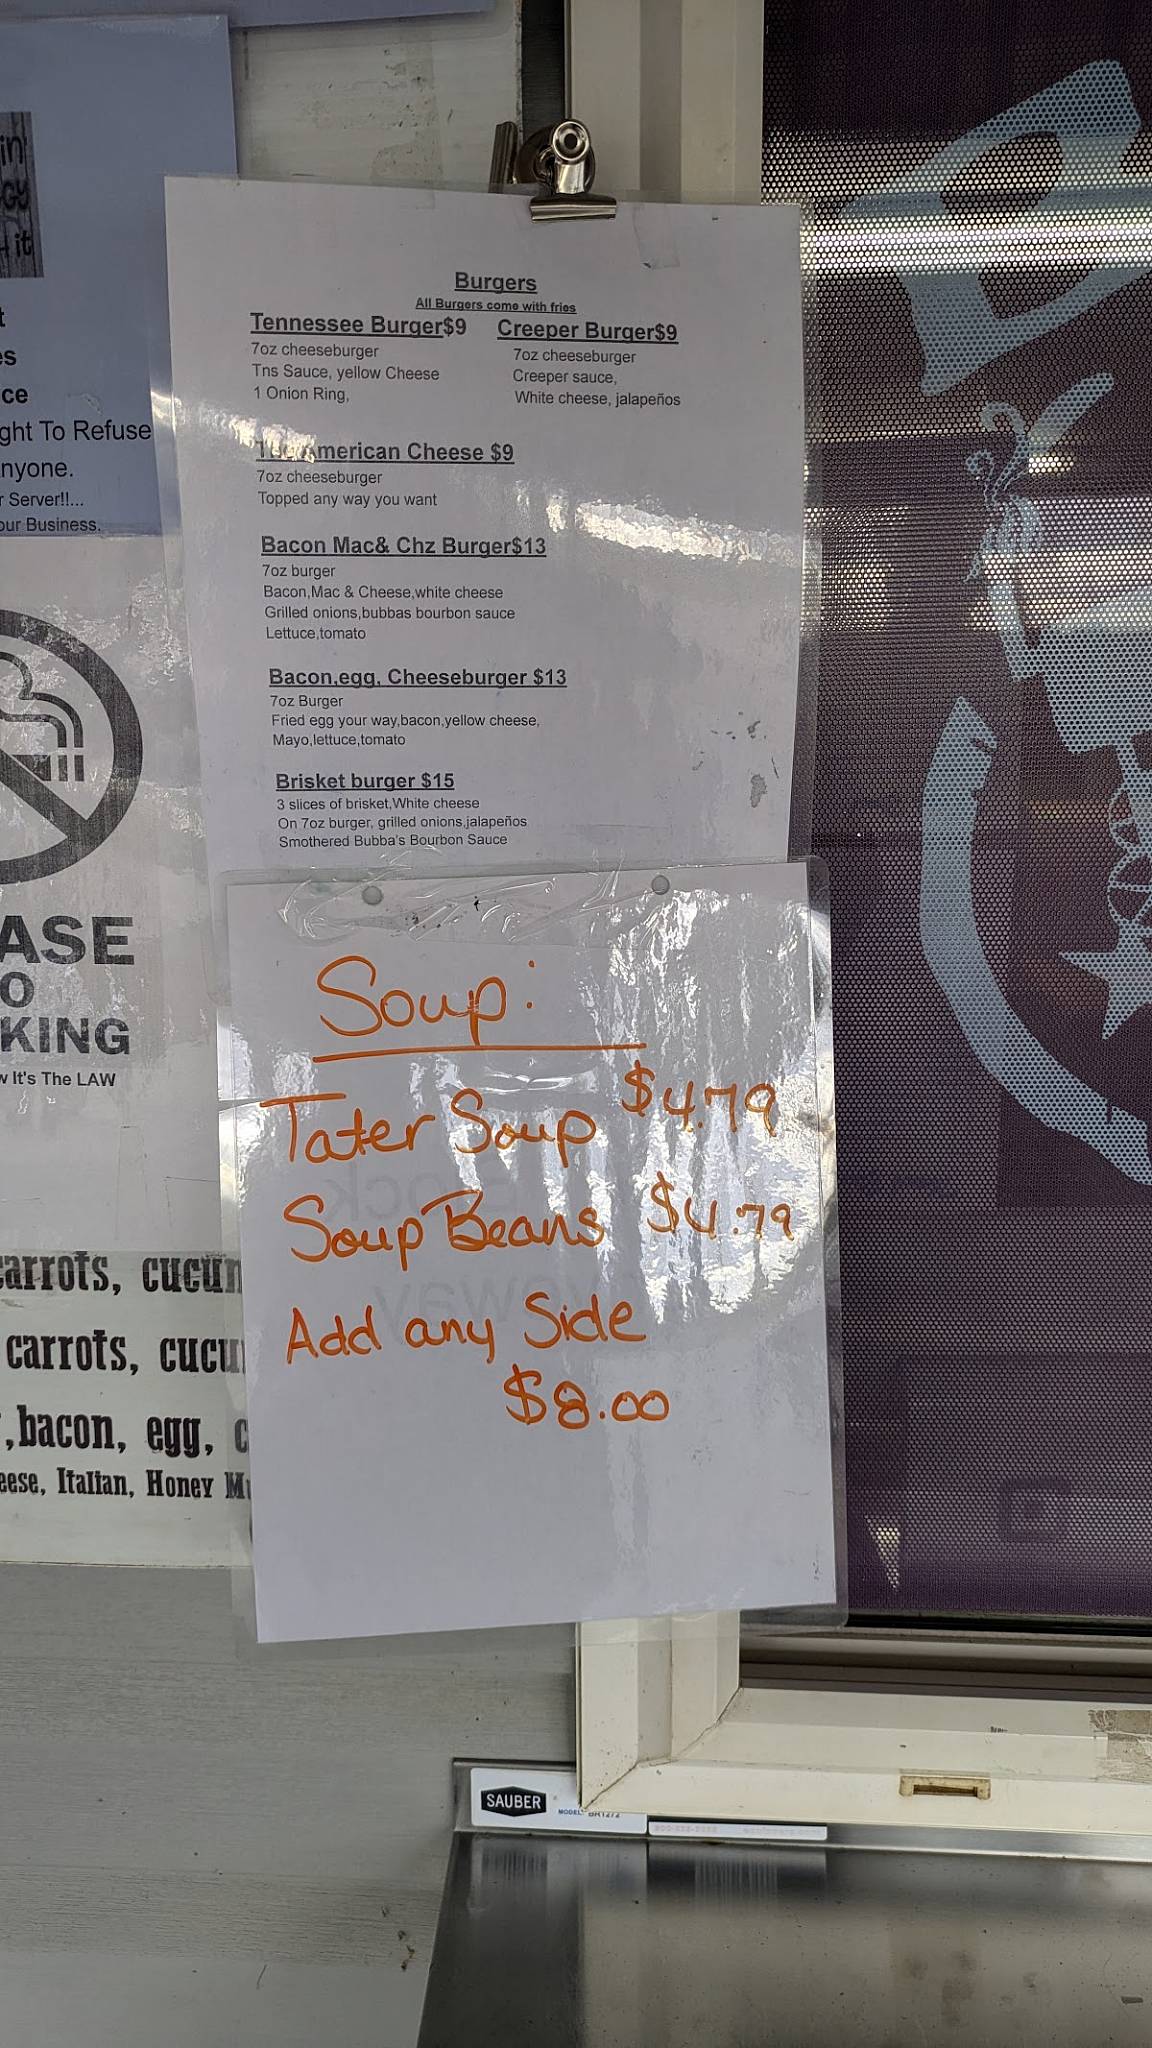 in
gy
it
t
es
ce
ght To Refuse
nyone.
r Server!!...
our Business.
Burgers
All Burgers come with fries
Tennessee Burger$9 Creeper Burger$9
7oz cheeseburger
Tns Sauce, yellow Cheese
1 Onion Ring,
7oz cheeseburger
Creeper sauce,
White cheese, jalapeños
American Cheese $9
7oz cheeseburger
Topped any way you want
Bacon Mac& Chz Burger$13
7oz burger
Bacon,Mac & Cheese,white cheese
Grilled onions,bubbas bourbon sauce
Lettuce,tomato
Bacon,egg, Cheeseburger $13
7oz Burger
Fried egg your way,bacon,yellow cheese,
Mayo,lettuce,tomato
Brisket burger $15
3 slices of brisket,White cheese
On 7oz burger, grilled onions,jalapeños
Smothered Bubba's Bourbon Sauce
Soup:
Tater Soup $4.79
Soup Beans $4.79
Add any Side
$8.00
ASE
O
KING
w It's The LAW
carrots, cucum
carrots, cucu
,bacon, egg, c
eese, Italian, Honey Mu
SAUBER
MODEL: